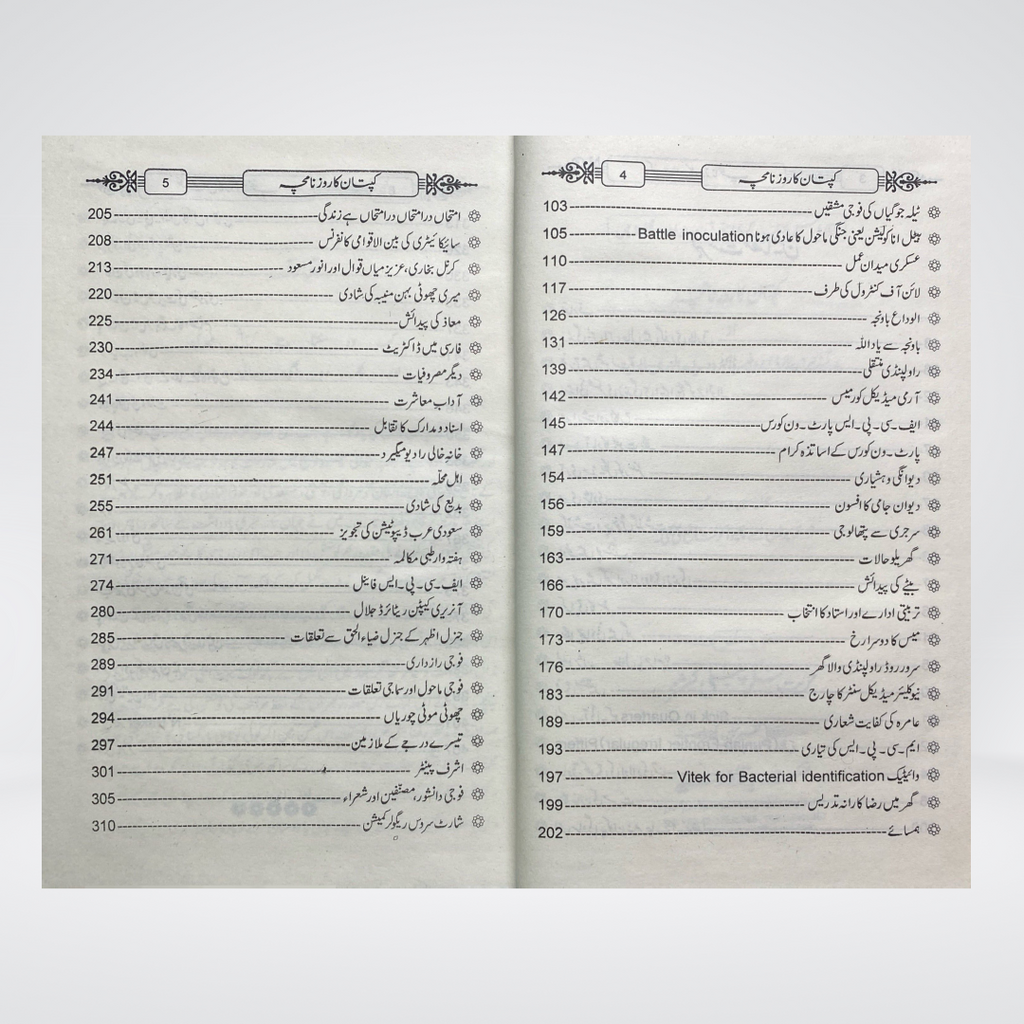 کپتان کا روزنامچہ 4
ٹیلہ جوگیاں کی فوجی مشقیں 103
بیٹل انا کولیشن یعنی جنگی ماحول کا عادی ہونا Battle inoculation 105
عسکری میدان عمل 110
لائن آف کنٹرول کی طرف 117
الوداع باونجہ 126
باونجہ سے یاد اللہ 131
راولپنڈی منتقلی 139
آرمی میڈیکل کور میس 142
ایف۔سی۔پی۔ایس پارٹ۔ون کورس 145
پارٹ۔ون کورس کے اساتذہ کرام 147
دیوانگی و ہشیاری 154
دیوان جامی کا افسون 156
سرجری سے پتھالوجی 159
گھریلو حالات 163
بیٹے کی پیدائش 166
تربیتی ادارے اور استاد کا انتخاب 170
میس کا دوسرا رخ 173
سرور روڈ راولپنڈی والا گھر 176
نیوکلیئر میڈیکل سنٹر کا چارج 183
عامرہ کی کفایت شعاری 189
ایم۔سی۔پی۔ایس کی تیاری 193
وائیٹیک Vitek for Bacterial identification 197
گھر میں رضا کارانہ تدریس 199
ہمسائے 202
کپتان کا روزنامچہ 5
امتحاں در امتحاں در امتحاں ہے زندگی 205
سائیکائیٹری کی بین الاقوامی کانفرنس 208
کرنل بخاری، عزیز میاں قوال اور انور مسعود 213
میری چھوٹی بہن منیبہ کی شادی 220
معاذ کی پیدائش 225
فارسی میں ڈاکٹریٹ 230
دیگر مصروفیات 234
آداب معاشرت 241
اسناد و مدارک کا تقابل 244
خانہ خالی را دیو میگیرد 247
اہل محلّہ 251
بدیع کی شادی 255
سعودی عرب ڈیپوٹیشن کی تجویز 261
ہفتہ وار طبی مکالمہ 271
ایف۔سی۔پی۔ایس فائنل 274
آنریری کیپٹن ریٹائرڈ جلال 280
جنرل اظہر کے جنرل ضیاء الحق سے تعلقات 285
فوجی رازداری 289
فوجی ماحول اور سماجی تعلقات 291
چھوٹی موٹی چوریاں 294
تیسرے درجے کے ملازمین 297
اشرف پینٹر 301
فوجی دانشور، مصنّفین اور شعراء 305
شارٹ سروس ریگولر کمیشن 310